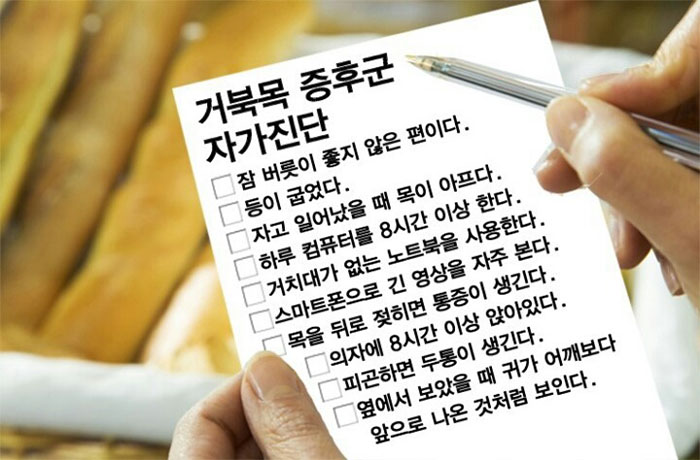 거북목 증후군
자가진단
잠 버릇이 좋지 않은 편이다.
등이 굽었다.
자고 일어났을 때 목이 아프다.
하루 컴퓨터를 8시간 이상 한다.
거치대가 없는 노트북을 사용한다.
스마트폰으로 긴 영상을 자주 본다.
목을 뒤로 젖히면 통증이 생긴다.
의자에 8시간 이상 앉아있다.
피곤하면 두통이 생긴다.
옆에서 보았을 때 귀가 어깨보다
앞으로 나온 것처럼 보인다.